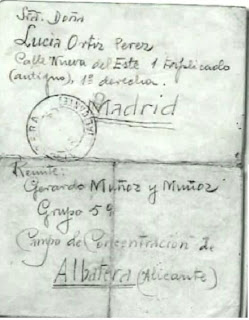 Srta. Doña
Lucia Ortiz Perez
Calle Nueva del Este 1 triplicado
(antiguo), 1º derecha.
Madrid
Remite:
Gerardo Muñoz y Muñoz
Grupo 5º
Campo de Concentración de
Albatera (Alicante)